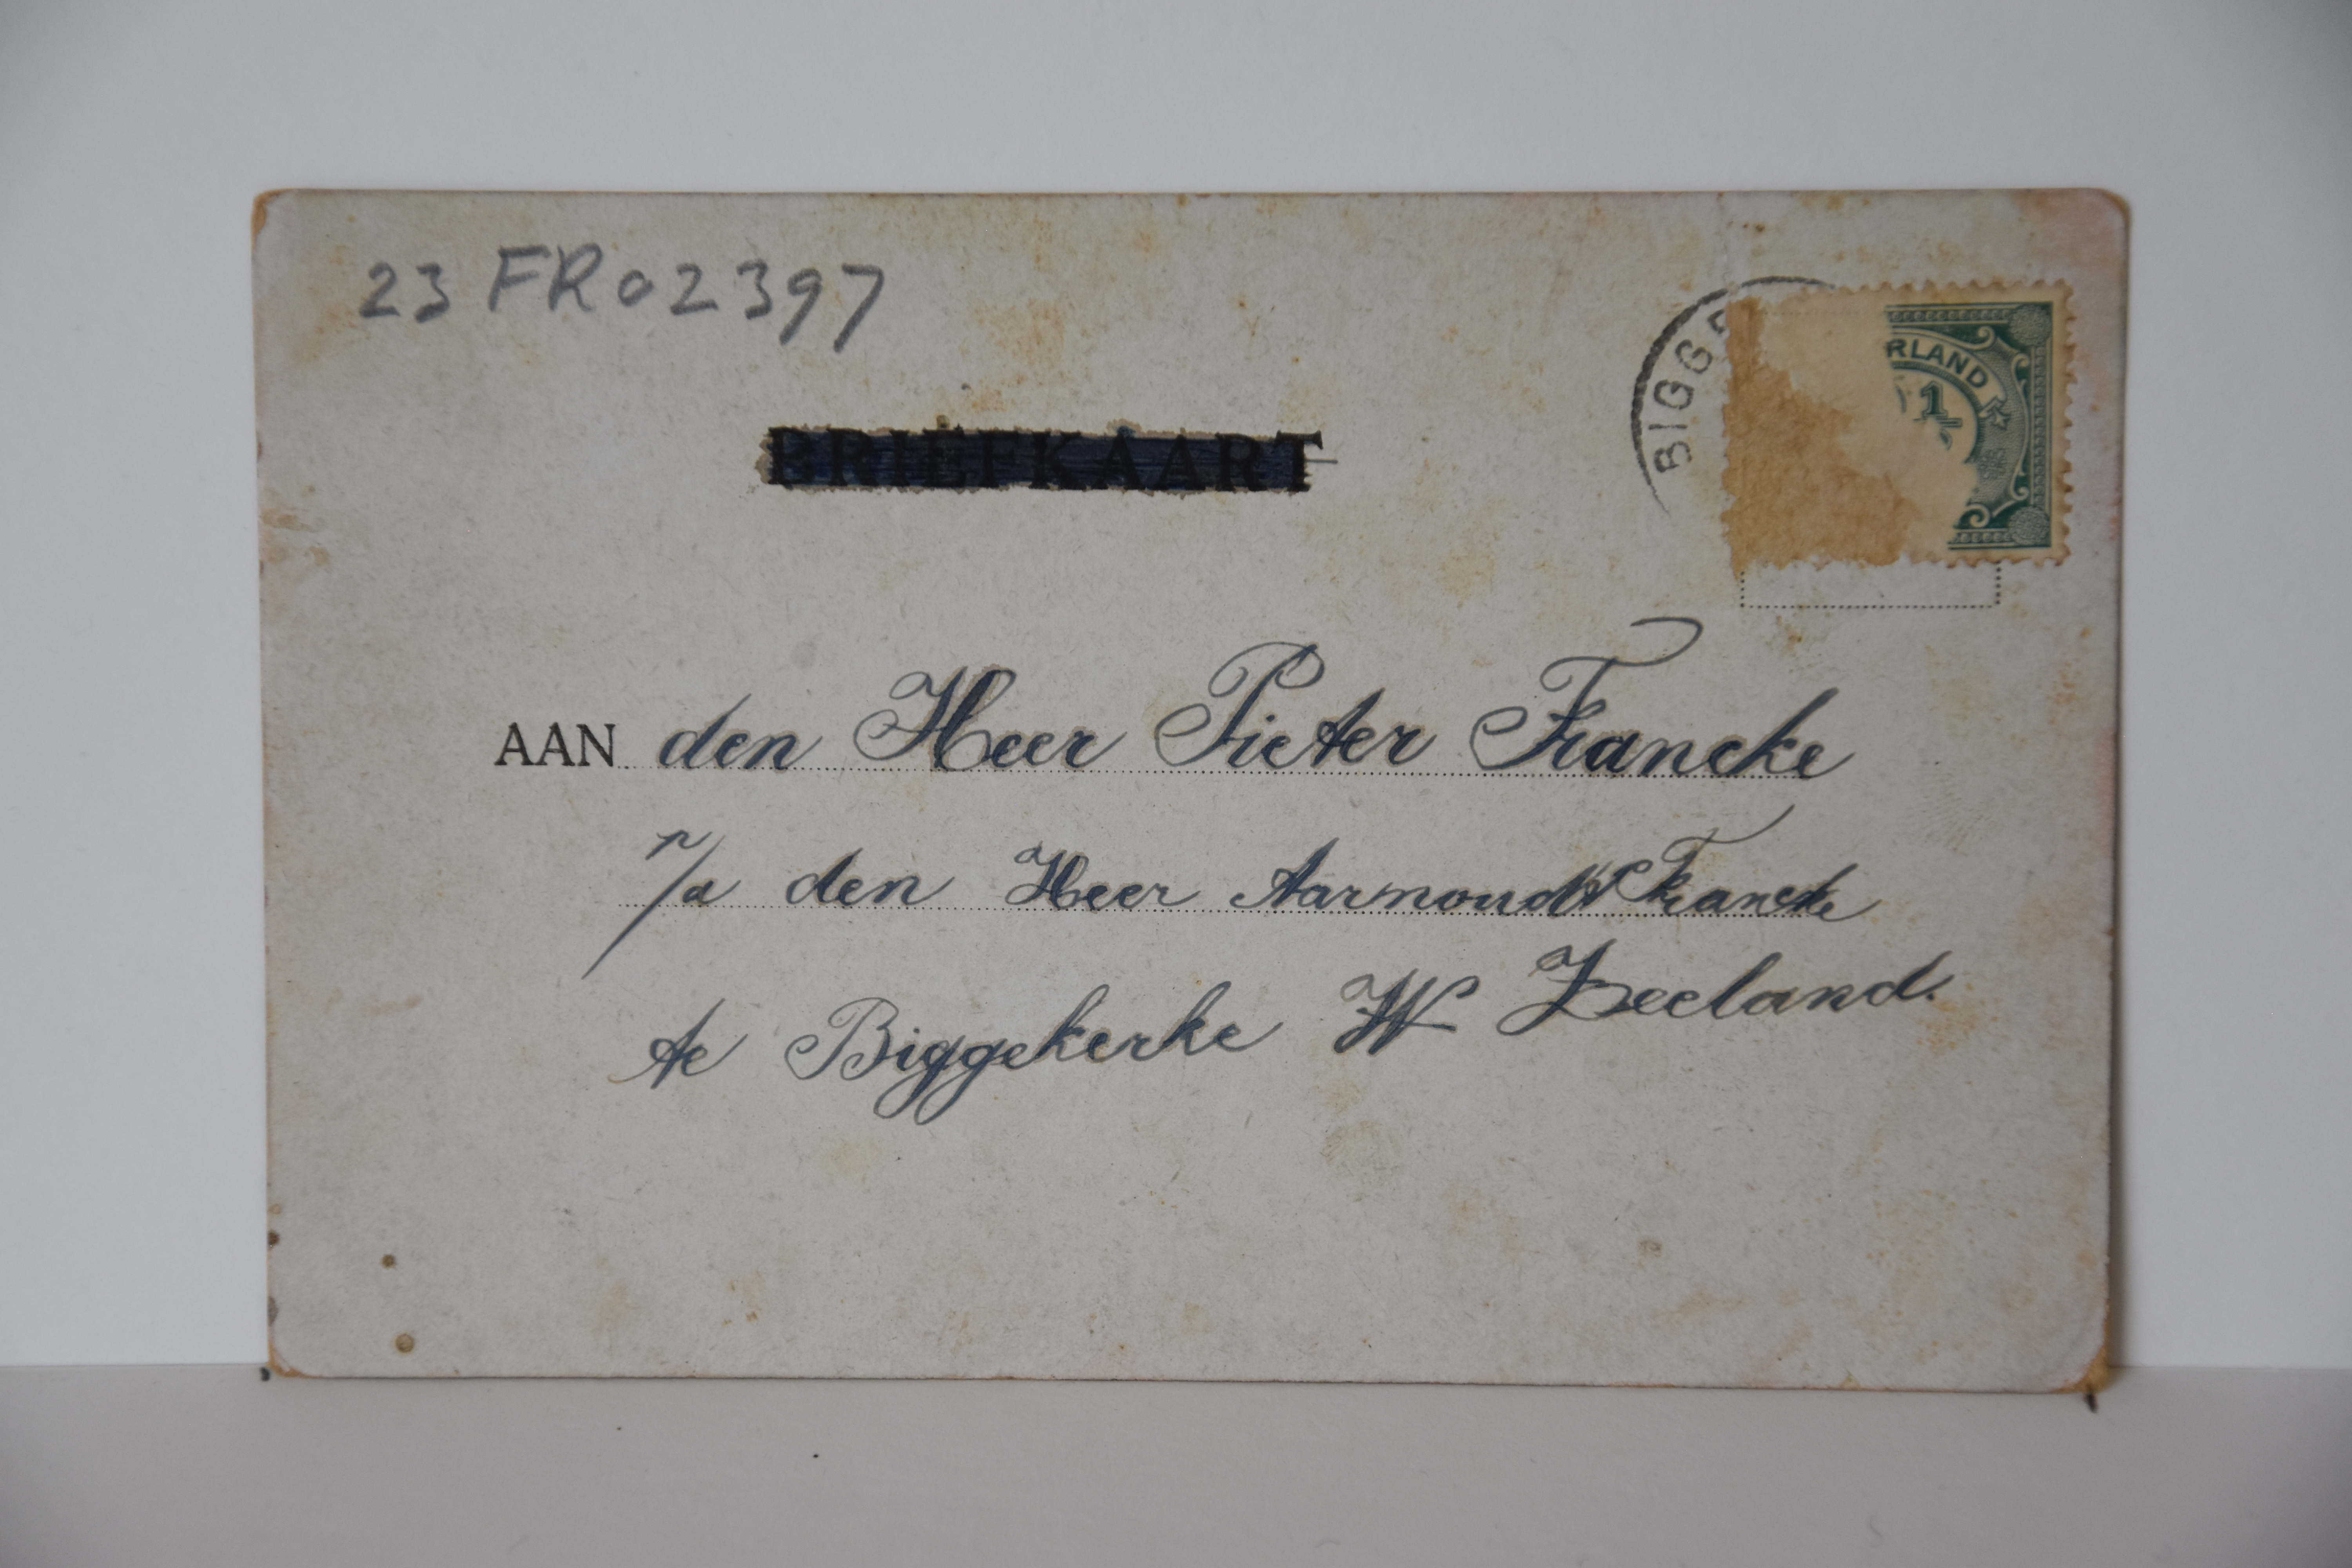 23 FR02397
BRIEFKAART
BIGGE
RLAND
1
AAN den Heer Pieter Francke
p/a den Heer Aarnoudt Francke
te Biggekerke W Zeeland.